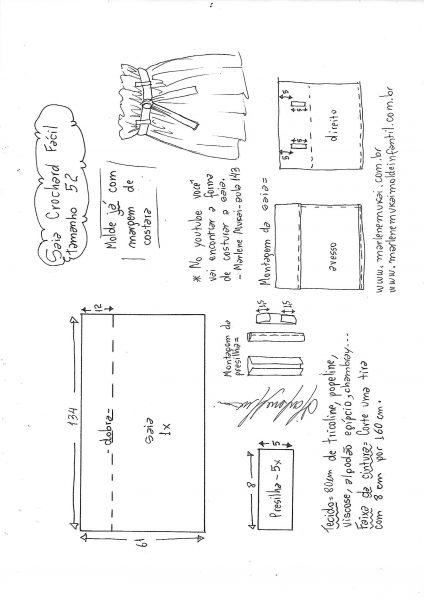 Saia Crochard Fácil
Tamanho 52
Molde já com
margem de
costura
* No youtube você
vai encontrar a forma
de costurar a saia.
- Marlene Mukai - aula 143
134
12
- dobra -
saia
1x
61
Montagem da
presilha=
1,5
1,5
Montagem da saia=
avesso
direito
5
5
5
5
8
5
Presilha - 5x
Tecido= 80cm de tricoline, popeline,
viscose, algodão egípcio, chambray...
Faixa da cintura= Corte uma tira
com 8 cm por 160 cm.
www.marlenemukai.com.br
www.marlenemukaimoldeinfantil.com.br